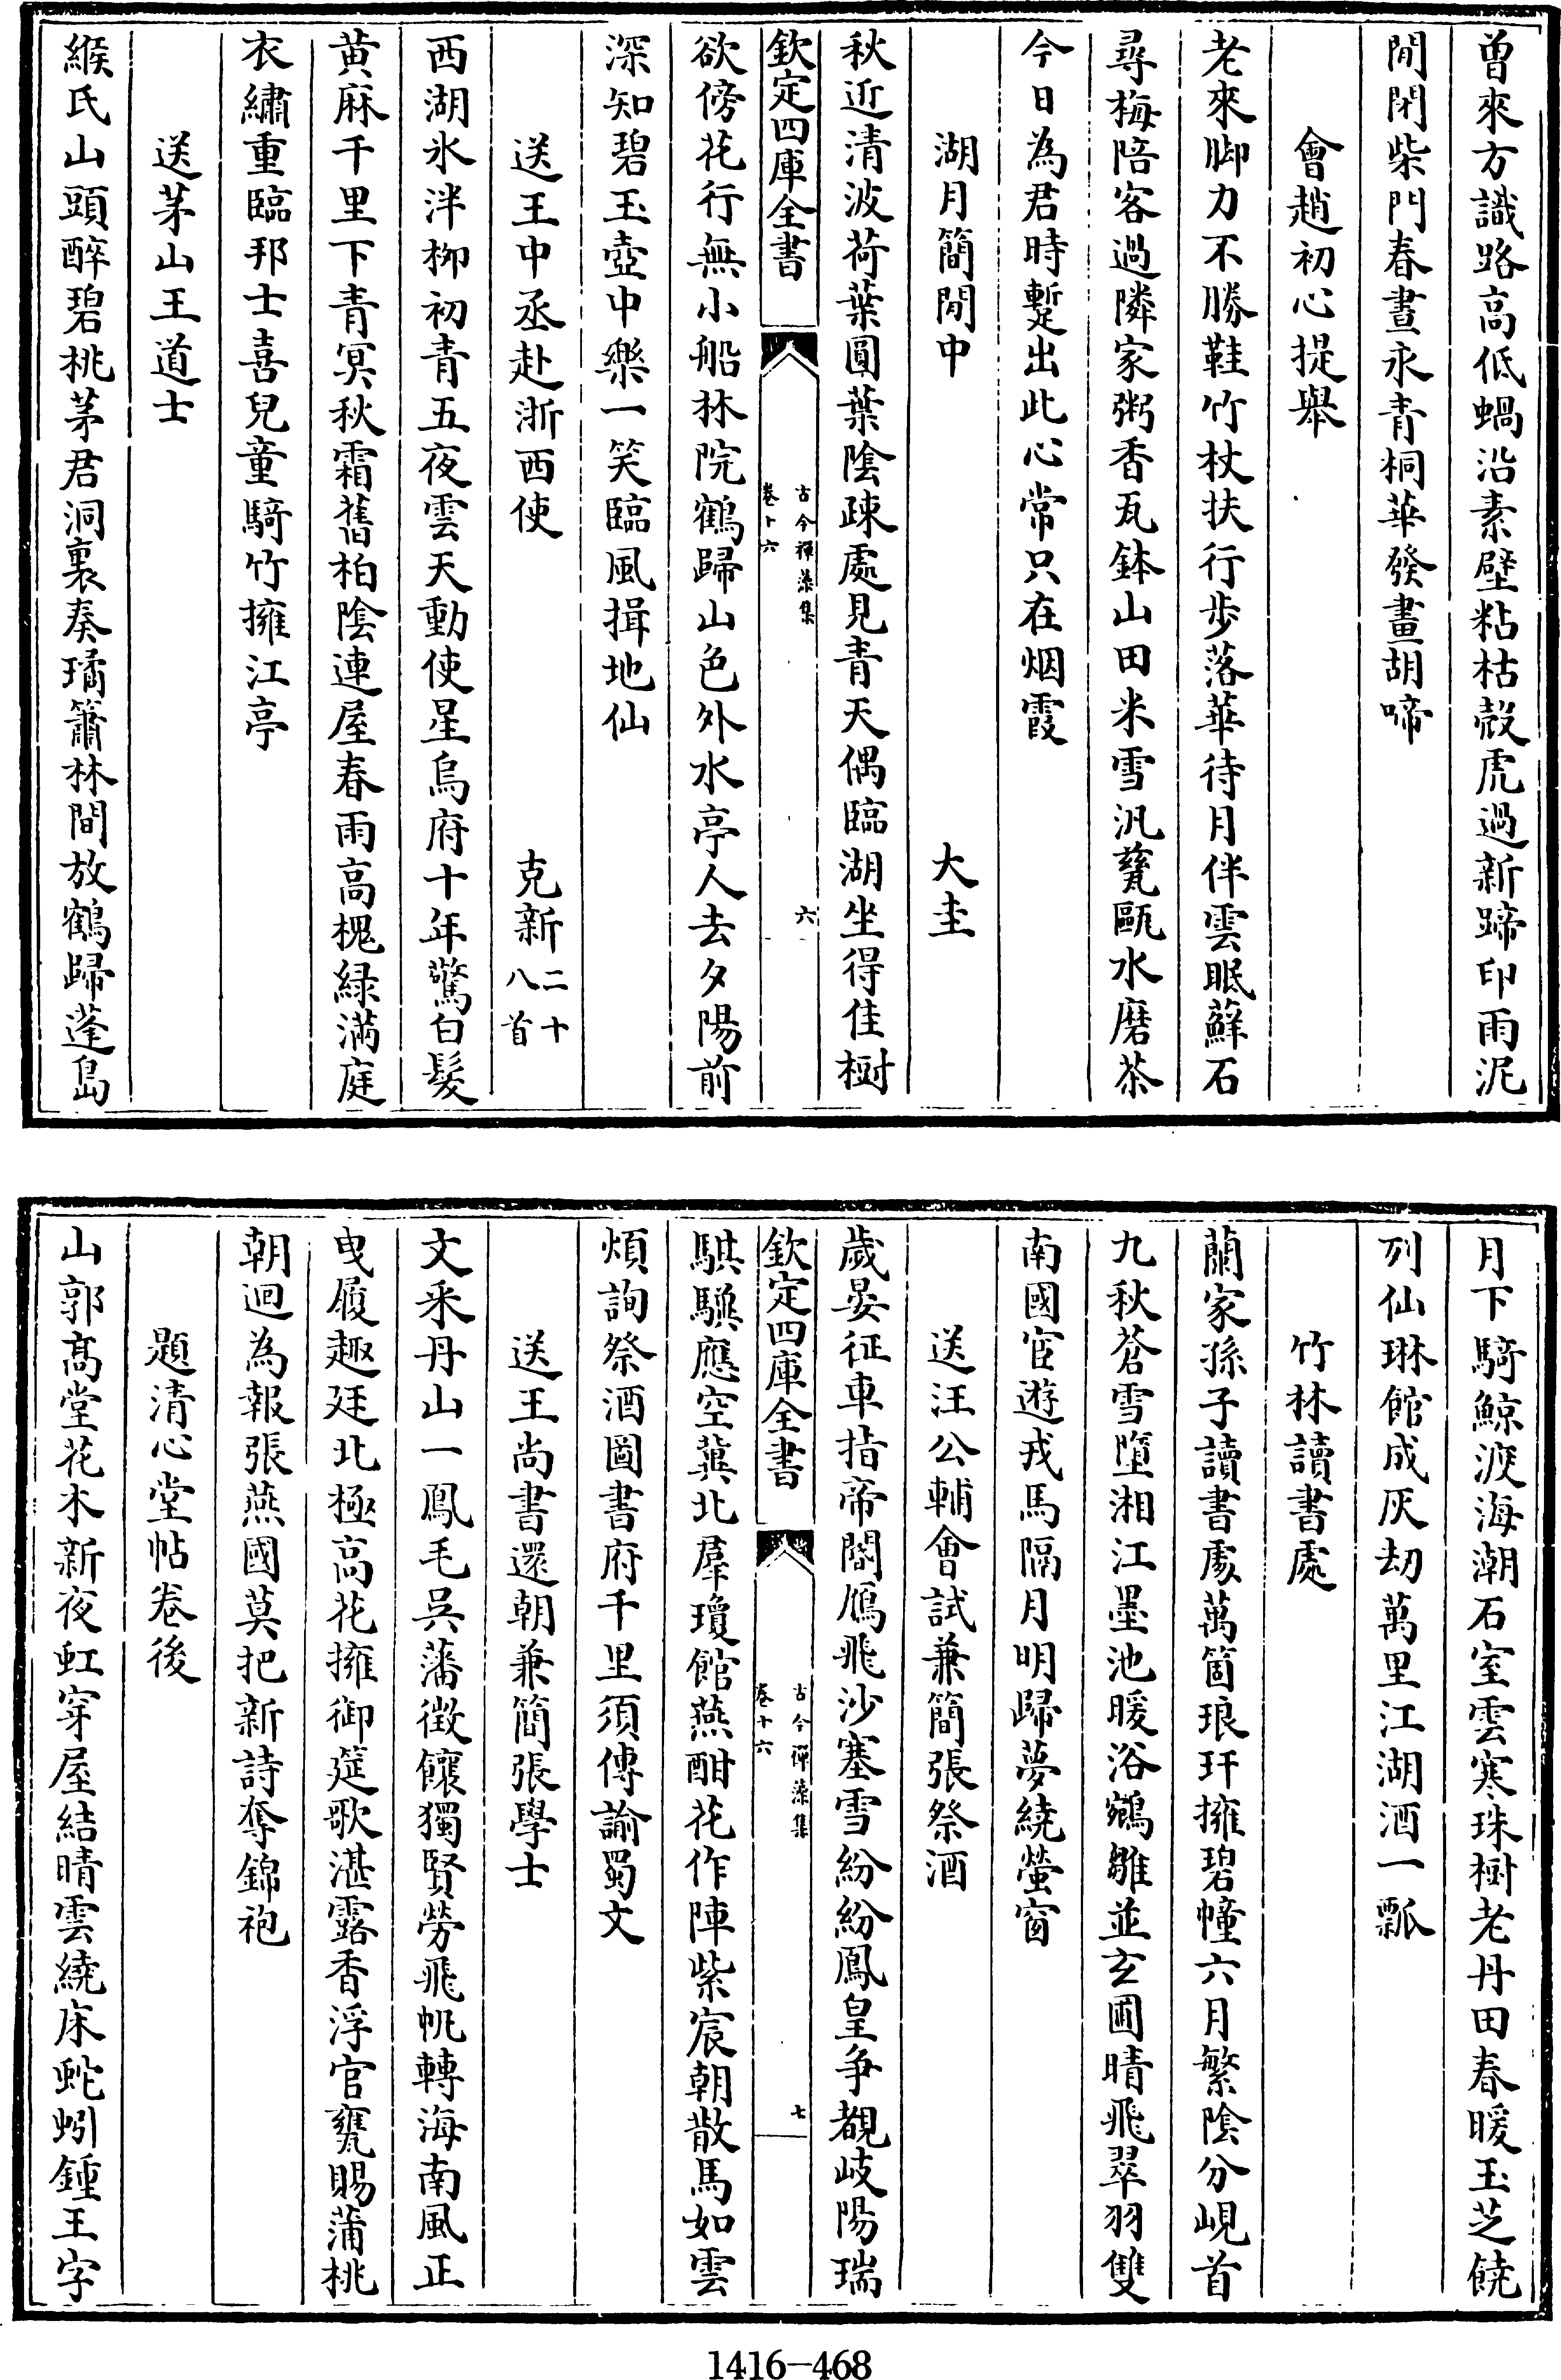 曽來方識路高低蝸沿素壁粘枯殻虎過新蹄印雨泥
閒閉柴門春晝永青桐華發畫胡啼
會趙初心提舉
老來脚力不勝鞋竹杖扶行步落華待月伴雲眠蘚石
尋梅陪客過隣家粥香瓦鉢山田米雪汎甆甌水磨茶
今日為君時蹔出此心常只在烟霞
湖月簡閒中　大圭
秋近清波荷葉圓葉陰疎處見青天偶臨湖坐得佳樹
欽定四庫全書　古今禪藻集　卷十六　六
欲傍花行無小船林院鶴歸山色外水亭人去夕陽前
深知碧玉壺中樂一笑臨風揖地仙
送王中丞赴浙西使　克新二十八首
西湖氷泮栁初青五夜雲天動使星烏府十年驚白髮
黄麻千里下青冥秋霜舊柏陰連屋春雨高槐緑滿庭
衣繡重臨邦士喜兒童騎竹擁江亭
送茅山王道士
緱氏山頭醉碧桃茅君洞裏奏璚簫林間放鶴歸蓬島
月下騎鯨渡海潮石室雲寒珠樹老丹田春暖玉芝饒
列仙琳館成灰刧萬里江湖酒一瓢
竹林讀書處
蘭家孫子讀書處萬箇琅玕擁碧幢六月繁陰分峴首
九秋蒼雪墮湘江墨池暖浴鵷雛並玄圃晴飛翠羽雙
南國宦遊戎馬隔月明歸夢繞螢窗
送汪公輔會試兼簡張祭酒
歲晏征車指帝閽鴈飛沙塞雪紛紛鳳皇争覩岐陽瑞
欽定四庫全書　古今禪藻集　卷十六　七
騏驥應空冀北羣瓊館燕酣花作陣紫宸朝散馬如雲
煩詢祭酒圖書府千里須傳諭蜀文
送王尚書還朝兼簡張學士
文采丹山一鳳毛吳藩徴饟獨賢勞飛帆轉海南風正
曵履趣廷北極高花擁御筵歌湛露香浮官甕賜蒲桃
朝迴為報張燕國莫把新詩奪錦袍
題清心堂帖卷後
山郭髙堂花木新夜虹穿屋結晴雲繞床虵蚓鍾王字
1416-468